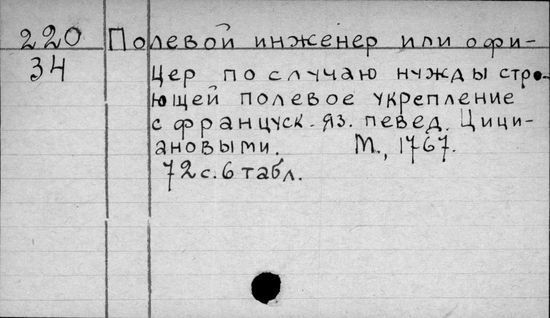 220 Полевой инженер или офи-
34 цер по случаю нужды стро-
ющей полевое укрепление
с француск. яз. певед. Цици-
ановыми. М., 1767.
72 с. 6 табл.